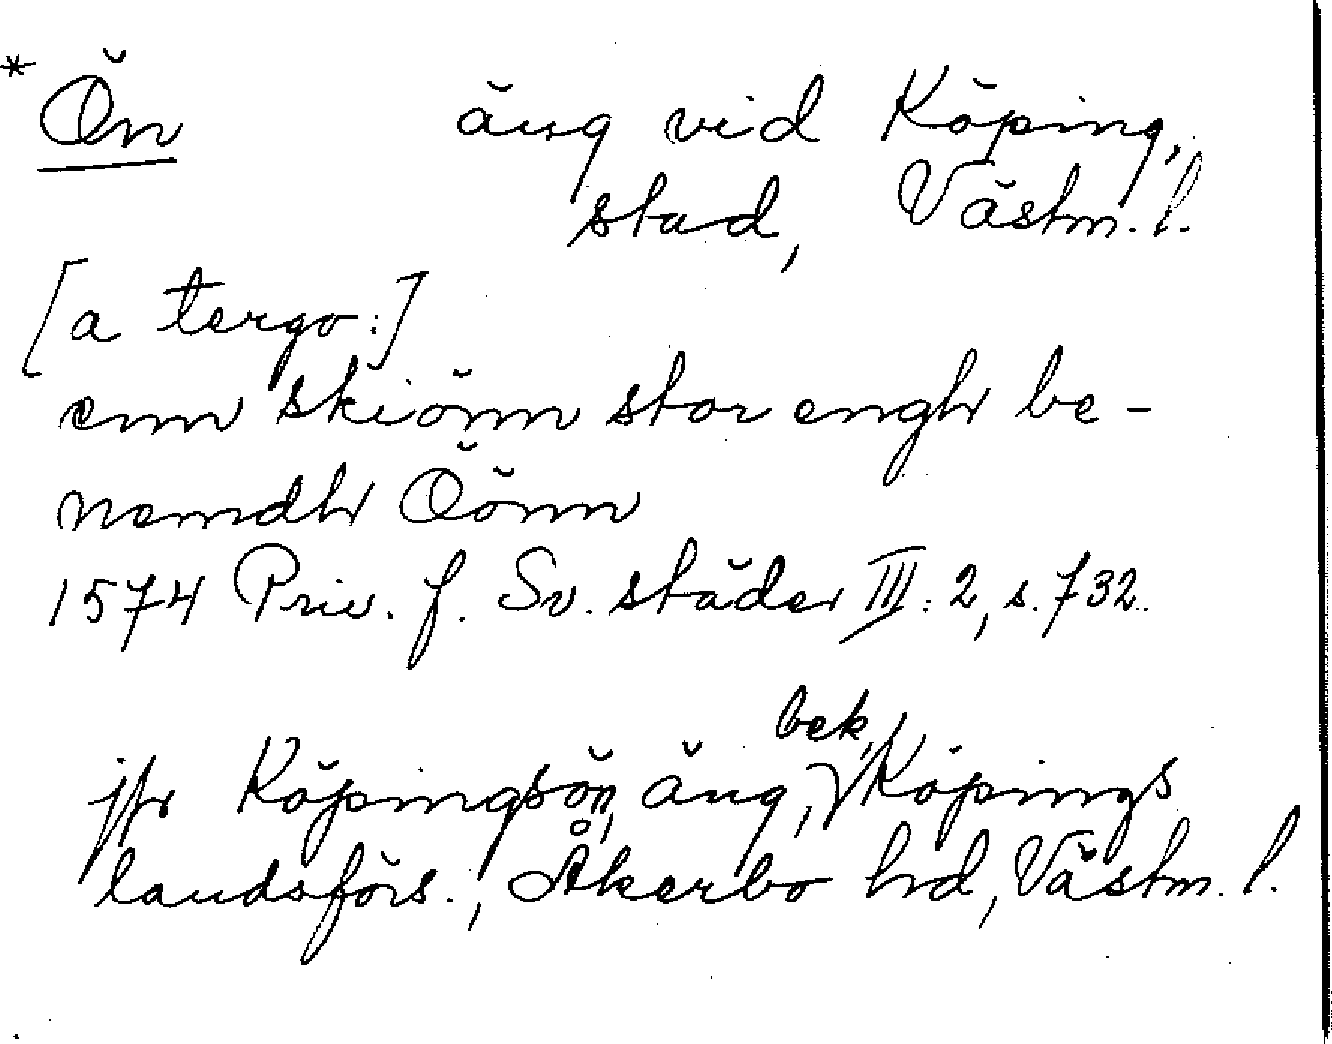 * Ön äng vid Köping,
stad, Västm. l.
[a tergo:]
enn skiönn stor engh be-
nemdh Öönn
1574 Priv. f. Sv. städer III: 2, s. 732.
jfr Köpingsön, äng, bek, Köpings
landsförs., Åkerbo hd, Västm. l.